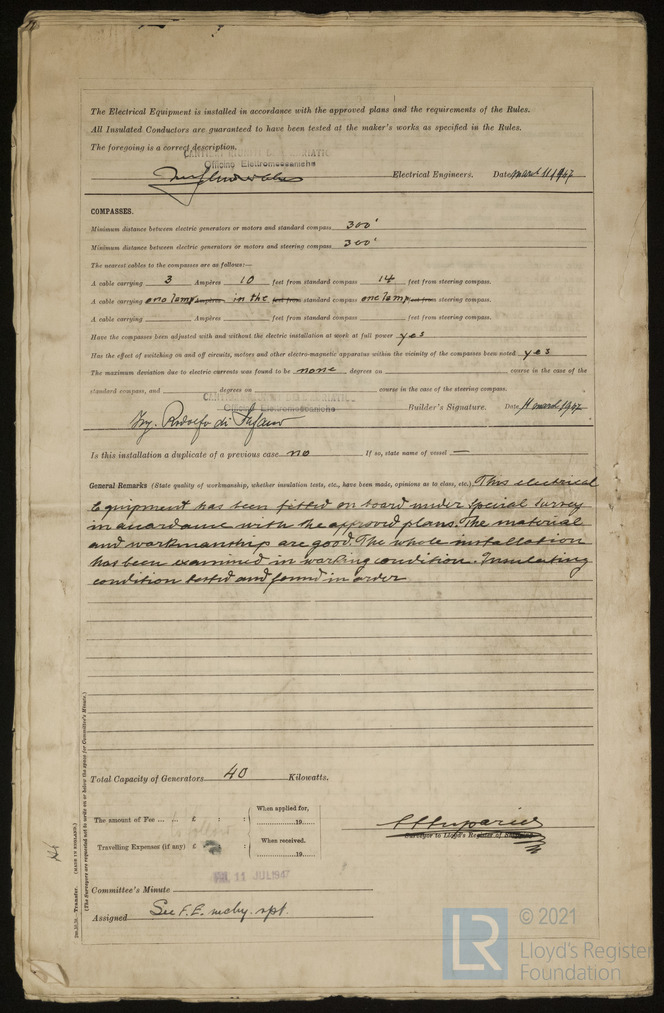 The Electrical Equipment is installed in accordance with the approved plans and the requirements of the Rules.
All Insulated Conductors are guaranteed to have been tested at the maker's works as specified in the Rules.
The foregoing is a correct description.
Officine Elettromeccaniche
Electrical Engineers. Date March 11, 1947
COMPASSES.
Minimum distance between electric generators or motors and standard compass 300'
Minimum distance between electric generators or motors and steering compass 300'
The nearest cables to the compasses are as follows:—
A cable carrying 3 Ampères 10 feet from standard compass 14 feet from steering compass.
A cable carrying one lamp Ampères in the feet from standard compass one lamp feet from steering compass.
A cable carrying Ampères feet from standard compass feet from steering compass.
Have the compasses been adjusted with and without the electric installation at work at full power yes
Has the effect of switching on and off circuits, motors and other electro-magnetic apparatus within the vicinity of the compasses been noted yes
The maximum deviation due to electric currents was found to be none degrees on course in the case of the
standard compass, and degrees on course in the case of the steering compass.
Officine Elettromeccaniche
Ing. Rodolfo di Stefano Builder's Signature. Date 11 march 1947
Is this installation a duplicate of a previous case no If so, state name of vessel —
General Remarks (State quality of workmanship, whether insulation tests, etc., have been made, opinions as to class, etc.) This electrical
Equipment has been fitted on board under Special Survey
in accordance with the approved plans. The material
and workmanship are good. The whole installation
has been examined in working condition. Insulating
condition tested and found in order
Total Capacity of Generators 40 Kilowatts.
The amount of Fee ... ... £ : :
to follow
When applied for,
19
Travelling Expenses (if any) £ : :
When received.
19
Surveyor to Lloyd's Register of
11 JUL 1947
Committee's Minute
Assigned See F.E. mchy. rpt.
Transfer. (MADE IN ENGLAND.)
(The Surveyors are requested not to write on or below the space for Committee's Minute.)
LR
© 2021
Lloyd's Register
Foundation